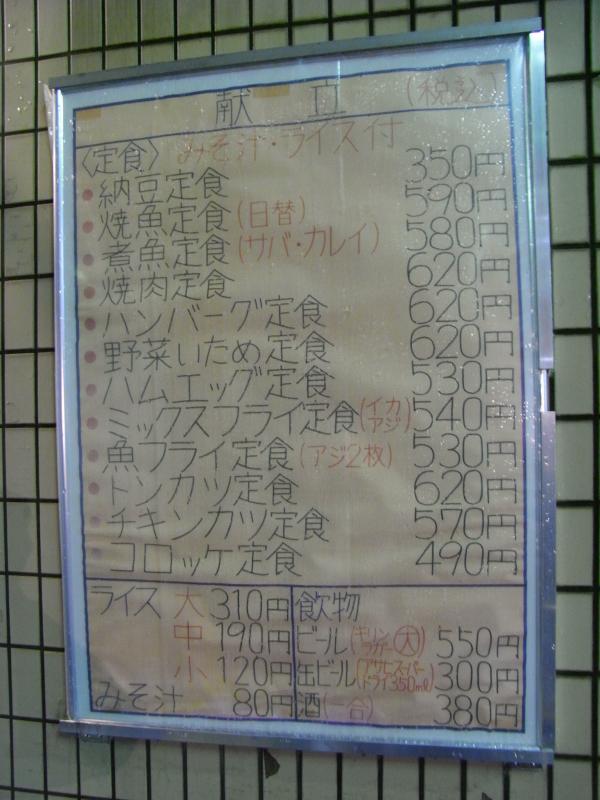 献立 (税込)
〈定食〉 みそ汁・ライス付
納豆定食 350円
焼魚定食(日替) 590円
煮魚定食(サバ・カレイ) 580円
焼肉定食 620円
ハンバーグ定食 620円
野菜いため定食 620円
ハムエッグ定食 530円
ミックスフライ定食(イカアジ) 540円
魚フライ定食(アジ2枚) 530円
トンカツ定食 620円
チキンカツ定食 570円
コロッケ定食 490円
ライス 大 310円
中 190円
小 120円
みそ汁 80円
飲物
ビール(キリンラガー大) 550円
缶ビール(アサヒスーパードライ350ml) 300円
酒(一合) 380円